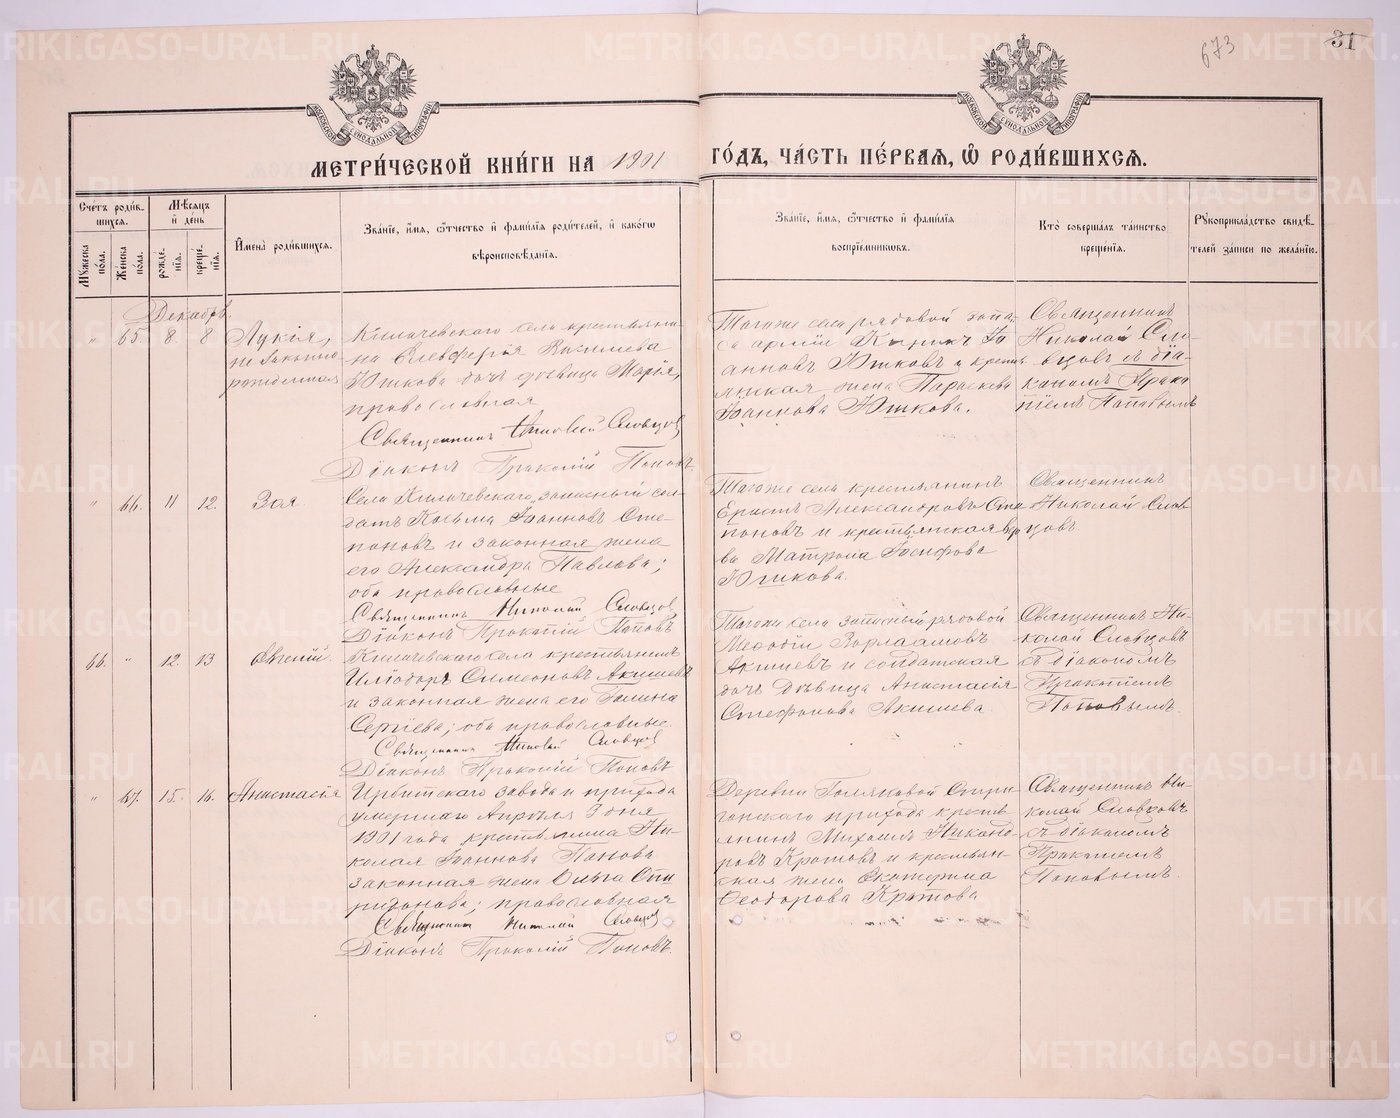 673
31
МЕТРИ́ЧЕСКОЙ КНИ́ГИ НА 1901 ГО́ДЪ, ЧА́СТЬ ПЕ́РВАЯ, Ѽ РОДИ́ВШИХСЯ.
Сче́тъ роди́в-
шихся.
Мѣ́сяцъ
и҆ де́нь
Мꙋ́жеска по́ла.
Же́нска по́ла.
рожде́-
нїя.
креще́-
нїя.
И҆мена̀ роди́вшихся.
Зва́нїе, и҆́мя, ѻ҆́тчество и҆ фами́лїя роди́телей, и҆ како́гѡ
вѣроисповѣ́данїя.
Зва́нїе, и҆́мя, ѻ҆́тчество и҆ фами́лїя
воспрїе́мниковъ.
Кто̀ соверша́лъ та́инство
креще́нїя.
Рꙋкоприкла́дство свидѣ́-
телей за́писи по жела́нїю.
Декабрь
" 65. 8. 8 Лукія,
не законно-
рожденная
Киначевскаго села крестьяни-
на Елевферія Василиева
Юшкова дочь дѣвица Марія,
православная
Священникъ Николай Словцовъ
Діаконъ Прокопій Поповъ
Тогоже села рядовой запа-
са арміи Іо
анновъ Юшковъ и крестья
янская жена Параскева
Іоаннова Юшкова.
Священникъ
Николай Сло-
вцовъ съ діа-
кономъ Проко-
піемъ Поповымъ
" 66. 11 12. Зоя
Села Киначевскаго запасный сол-
датъ Косьма Іоанновъ Сте-
поновъ и законная жена
его Александра Павлова;
оба православные
Священникъ Николай Словцовъ
Діаконъ Прокопій Поповъ
Тогоже села крестьянинъ
Ерастъ Александровъ Сте
поновъ и крестьянская вдо
ва Матрона Іосифова
Юшкова.
Священникъ
Николай Слов-
цовъ
66. " 12. 13 Евгеній.
Киначевскаго села крестьянинъ
Иліодоръ Симеоновъ Акишевъ
и законная жена его Галина
Сергіева; оба православные.
Священникъ Николай Словцовъ
Діаконъ Прокопій Поповъ
Тогоже села запасный рядовой
Меѳодій Варлаамовъ
Акишевъ и солдатская
дочь дѣвица Анастасія
Стефанова Акишева.
Священникъ Ни-
колай Словцовъ
съ діакономъ
Прокопіемъ
Поповымъ.
" 67. 15. 16. Анастасія
Ирбитскаго завода и прихода
умершаго Апрѣля 3 дня
1901 года крестьянина Ни-
колая Іоаннова Панова
законная жена Ольга Спи
ридонова; православная
Священникъ Николай Словцовъ
Діаконъ Прокопій Поповъ.
Деревни Голяковой Стри-
ганскаго прихода кресть-
янинъ Михаилъ Никано-
ровъ Кротовъ и крестьян-
ская жена Екатерина
Ѳеодорова Кротова
Священникъ Ни-
колай Словцовъ
съ діакономъ
Прокопіемъ
Поповымъ.
METRIKI.GASO-URAL.RU